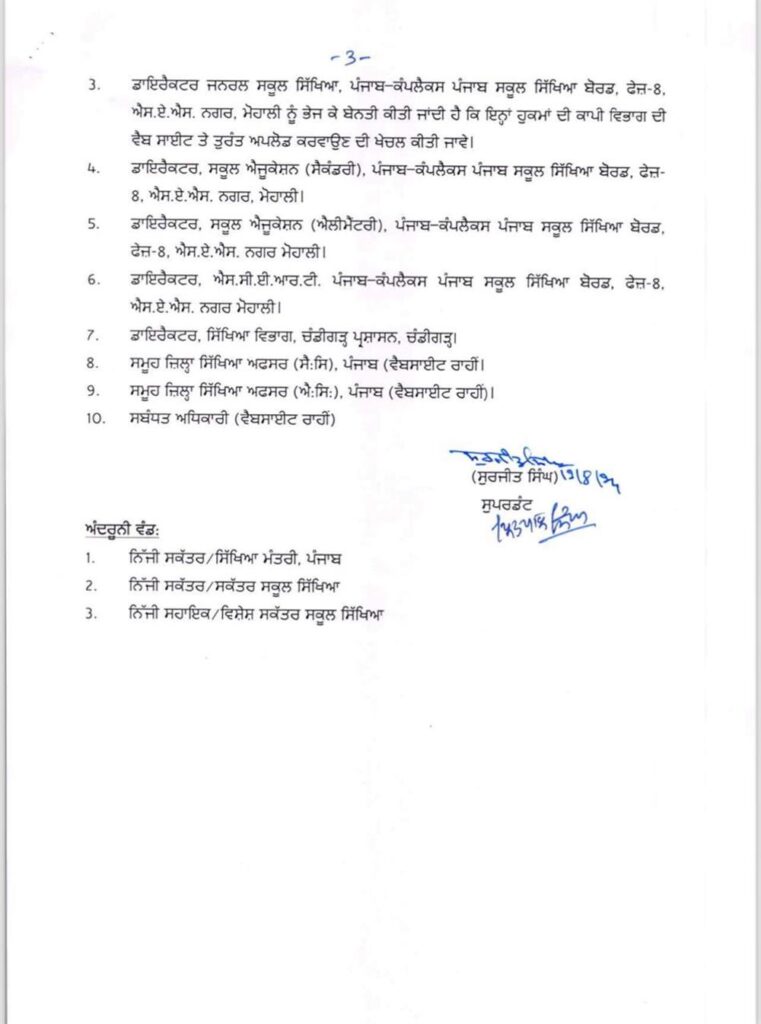 -3-
3. ਡਾਇਰੈਕਟਰ ਜਨਰਲ ਸਕੂਲ ਸਿੱਖਿਆ, ਪੰਜਾਬ-ਕੰਪਲੈਕਸ ਪੰਜਾਬ ਸਕੂਲ ਸਿੱਖਿਆ ਬੋਰਡ, ਫੇਜ਼-8,
ਐਸ.ਏ.ਐਸ. ਨਗਰ, ਮੋਹਾਲੀ ਨੂੰ ਭੇਜ ਕੇ ਬੇਨਤੀ ਕੀਤੀ ਜਾਂਦੀ ਹੈ ਕਿ ਇਨ੍ਹਾਂ ਹੁਕਮਾਂ ਦੀ ਕਾਪੀ ਵਿਭਾਗ ਦੀ
ਵੈਬ ਸਾਈਟ ਤੇ ਤੁਰੰਤ ਅਪਲੋਡ ਕਰਵਾਉਣ ਦੀ ਖੇਚਲ ਕੀਤੀ ਜਾਵੇ।
4. ਡਾਇਰੈਕਟਰ, ਸਕੂਲ ਐਜੂਕੇਸ਼ਨ (ਸੈਕੰਡਰੀ), ਪੰਜਾਬ-ਕੰਪਲੈਕਸ ਪੰਜਾਬ ਸਕੂਲ ਸਿੱਖਿਆ ਬੋਰਡ, ਫੇਜ਼-
8, ਐਸ.ਏ.ਐਸ. ਨਗਰ, ਮੋਹਾਲੀ।
5. ਡਾਇਰੈਕਟਰ, ਸਕੂਲ ਐਜੂਕੇਸ਼ਨ (ਐਲੀਮੈਂਟਰੀ), ਪੰਜਾਬ-ਕੰਪਲੈਕਸ ਪੰਜਾਬ ਸਕੂਲ ਸਿੱਖਿਆ ਬੋਰਡ,
ਫੇਜ਼-8, ਐਸ.ਏ.ਐਸ. ਨਗਰ ਮੋਹਾਲੀ।
6. ਡਾਇਰੈਕਟਰ, ਐਸ.ਸੀ.ਈ.ਆਰ.ਟੀ. ਪੰਜਾਬ-ਕੰਪਲੈਕਸ ਪੰਜਾਬ ਸਕੂਲ ਸਿੱਖਿਆ ਬੋਰਡ, ਫੇਜ਼-8,
ਐਸ.ਏ.ਐਸ. ਨਗਰ ਮੋਹਾਲੀ।
7. ਡਾਇਰੈਕਟਰ, ਸਿੱਖਿਆ ਵਿਭਾਗ, ਚੰਡੀਗੜ੍ਹ ਪ੍ਰਸ਼ਾਸਨ, ਚੰਡੀਗੜ੍ਹ।
8. ਸਮੂਹ ਜ਼ਿਲ੍ਹਾ ਸਿੱਖਿਆ ਅਫਸਰ (ਸੈ:ਸਿ), ਪੰਜਾਬ (ਵੈਬਸਾਈਟ ਰਾਹੀਂ।
9. ਸਮੂਹ ਜ਼ਿਲ੍ਹਾ ਸਿੱਖਿਆ ਅਫਸਰ (ਐ:ਸਿ:), ਪੰਜਾਬ (ਵੈਬਸਾਈਟ ਰਾਹੀਂ)।
10. ਸਬੰਧਤ ਅਧਿਕਾਰੀ (ਵੈਬਸਾਈਟ ਰਾਹੀਂ)
(ਸੁਰਜੀਤ ਸਿੰਘ)
ਸੁਪਰਡੰਟ
ਅੰਦਰੂਨੀ ਵੰਡ:
1. ਨਿੱਜੀ ਸਕੱਤਰ/ਸਿੱਖਿਆ ਮੰਤਰੀ, ਪੰਜਾਬ
2. ਨਿੱਜੀ ਸਕੱਤਰ/ਸਕੱਤਰ ਸਕੂਲ ਸਿੱਖਿਆ
3. ਨਿੱਜੀ ਸਹਾਇਕ/ਵਿਸ਼ੇਸ਼ ਸਕੱਤਰ ਸਕੂਲ ਸਿੱਖਿਆ